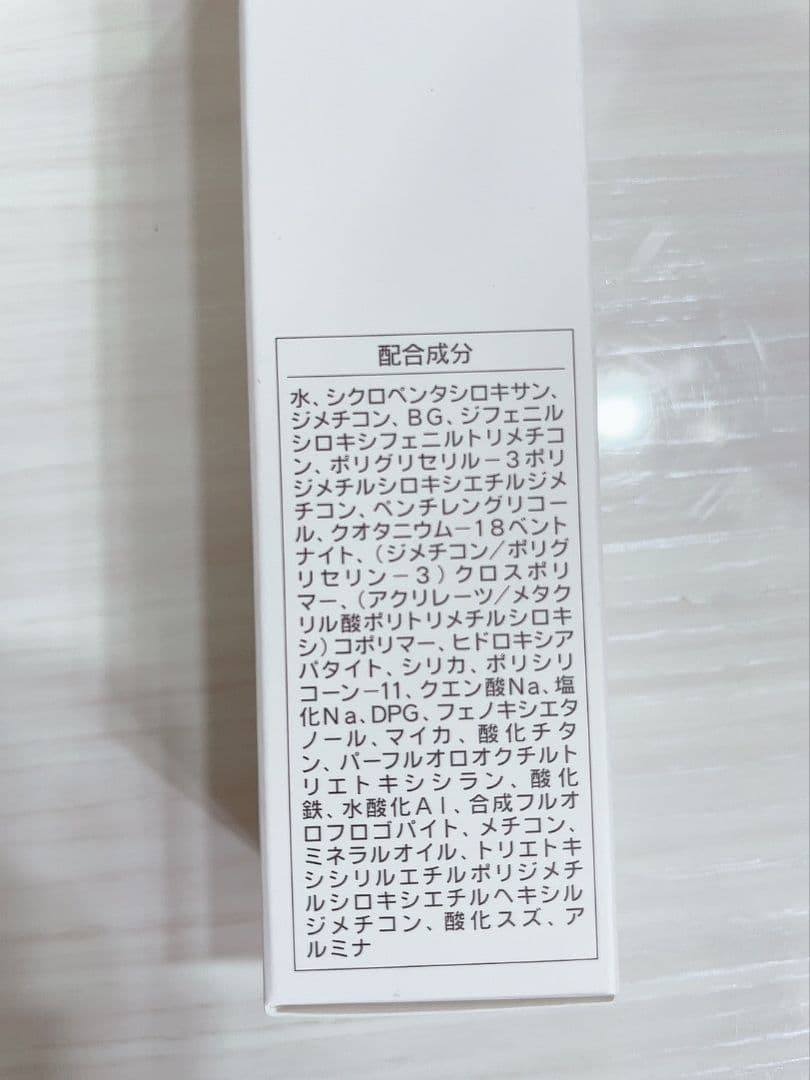 配合成分
水、シクロペンタシロキサン、
ジメチコン、BG、ジフェニル
シロキシフェニルトリメチコ
ン、ポリグリセリル－3ポリ
ジメチルシロキシエチルジメ
チコン、ペンチレングリコー
ル、クオタニウム－18ベント
ナイト、(ジメチコン/ポリグ
リセリン－3)クロスポリ
マー、(アクリレーツ/メタク
リル酸ポリトリメチルシロキ
シ)コポリマー、ヒドロキシア
パタイト、シリカ、ポリシリ
コーン－11、クエン酸Na、塩
化Na、DPG、フェノキシエタ
ノール、マイカ、酸化チタ
ン、パーフルオロオクチルト
リエトキシシラン、酸化
鉄、水酸化Al、合成フルオ
ロフロゴパイト、メチコン、
ミネラルオイル、トリエトキ
シシリルエチルポリジメチ
ルシロキシエチルヘキシル
ジメチコン、酸化スズ、ア
ルミナ